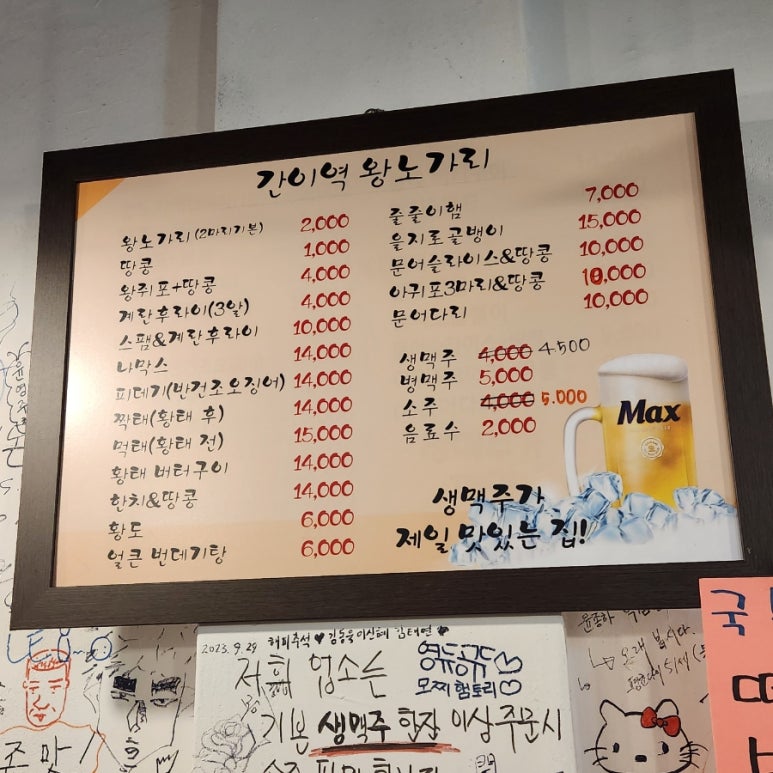 간이역 왕노가리
왕노가리(2마리기본) 2,000
땅콩 1,000
왕쥐포+땅콩 4,000
계란후라이(3알) 4,000
스팸&계란후라이 10,000
나막스 14,000
피데기(반건조오징어) 14,000
짝태(황태 후) 14,000
먹태(황태 전) 15,000
황태 버터구이 14,000
한치&땅콩 14,000
황도 6,000
얼큰 번데기탕 6,000
줄줄이햄 7,000
을지로골뱅이 15,000
문어슬라이스&땅콩 10,000
아귀포3마리&땅콩 10,000
문어다리 10,000
생맥주 4,000 4500
병맥주 5,000
소주 4,000 5.000
음료수 2,000
Max
생맥주가
제일 맛있는 집!
2023.9.29 해피추석 ♥ 김동율이신혜 김태연 ♥
저희 업소는
영듀공듀♡
모찌햄토리♡
기본 생맥주 한잔 이상 주문시
국